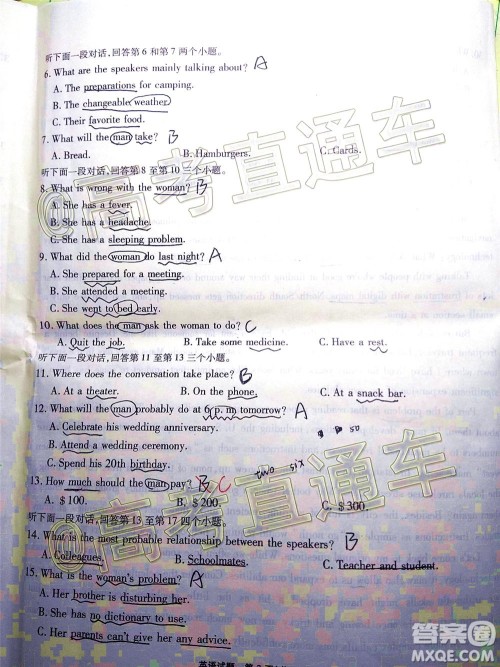 听下面一段对话,回答第 6 和第 7 两个小题。
6. What are the speakers mainly talking about? A
A. The preparations for camping.
B. The changeable weather.
C. Their favorite food.
7. What will the man take? B
A. Bread. B. Hamburgers. C. Cards.
听下面一段对话,回答第 8 至第 10 三个小题。
8. What is wrong with the woman? B
A. She has a fever.
B. She has a headache.
C. She has a sleeping problem.
9. What did the woman do last night? A
A. She prepared for a meeting.
B. She attended a meeting.
C. She went to bed early.
10. What does the man ask the woman to do? C
A. Quit the job. B. Take some medicine. C. Have a rest.
听下面一段对话,回答第 11 至第 13 三个小题。
11. Where does the conversation take place? B
A. At a theater. B. On the phone. C. At a snack bar.
12. What will the man probably do at 6 p. m. tomorrow? A
A. Celebrate his wedding anniversary.
B. Attend a wedding ceremony.
C. Spend his 20th birthday.
50
two six
13. How much should the man pay? B C
A. $ 100. B. $ 200. C. $ 300.
听下面一段对话,回答第 13 至第 17 四个小题。
14. What is the most probable relationship between the speakers? B
A. Colleagues. B. Schoolmates. C. Teacher and student.
15. What is the woman's problem? A
A. Her brother is disturbing her.
B. She has no dictionary to use.
C. Her parents can't give her any advice.
@高考直通车
@高考直通车
答案圈
MXQE.COM